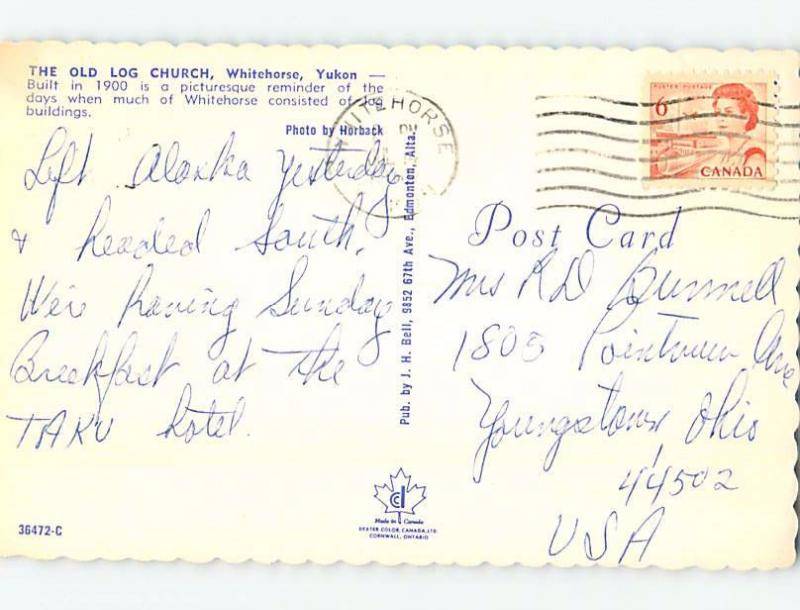 THE OLD LOG CHURCH, Whitehorse, Yukon —
Built in 1900 is a picturesque reminder of the
days when much of Whitehorse consisted of log
buildings.
Photo by Horback
Left Alaska yesterday
& headed South.
We're having Sunday
Breekfast at the
TAKU hotel.
36472-C
Pub. by J. H. Bell, 9852 67th Ave., Edmonton, Alta.
Made in Canada
DEXTER COLOR CANADA LTD.
CORNWALL, ONTARIO
WHITEHORSE
POSTES POSTAGE
6
CANADA
Post Card
Mrs R D Bunnell
1805 Ave
Youngstown, Ohio
44502
USA